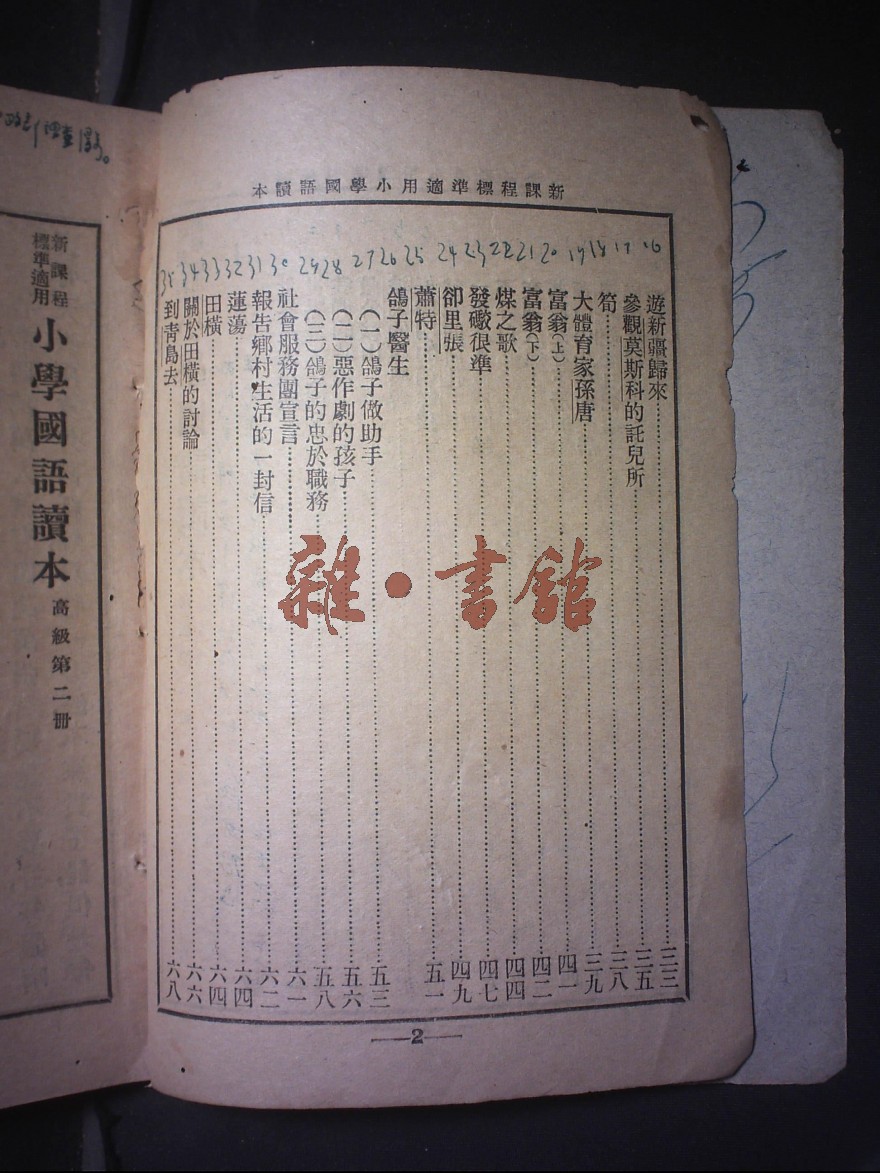 新課程標準適用小學國語讀本
16 17 18 19 20 21 22 23 24 25 26 27 28 29 30 31 32 33 34 35
遊新疆歸來 三三
參觀莫斯科的託兒所 三五
筍 三八
大體育家孫唐 三九
富翁(上) 四一
富翁(下) 四二
煤之歌 四四
發礮很準 四七
卻里張 四九
蕭特 五一
鴿子醫生
(一)鴿子做助手 五三
(二)惡作劇的孩子 五六
(三)鴿子的忠於職務 五八
社會服務團宣言 六一
報告鄉村生活的一封信 六二
蓮蕩 六四
田橫 六四
關於田橫的討論 六六
到靑島去 六八
2
新課程標準適用
小學國語讀本
高級第二册
雜·書館